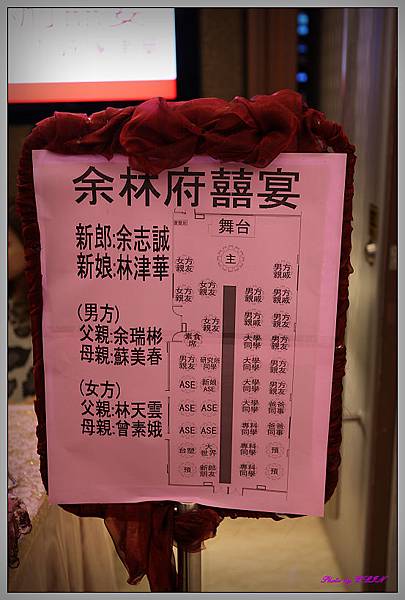 余林府囍宴
新郎:余志誠
新娘:林津華
(男方)
父親:余瑞彬
母親:蘇美春
(女方)
父親:林天雲
母親:曾素娥
舞台
主
女方親友
男方親戚
女方親友 女方親友
男方親戚 男方親戚
女方親友
男方親戚 男方親友
素食席
大學同學 男方親友
男方親友 研究所同學
大學同學 男方親友
ASE 新娘ASE
大學同學 男方親友
ASE ASE
大學同學 爸爸同事
ASE ASE
專科同學 爸爸同事
台塑 大世界
專科同學 預
預 新郎朋友
專科同學 預
Photo by KLIN